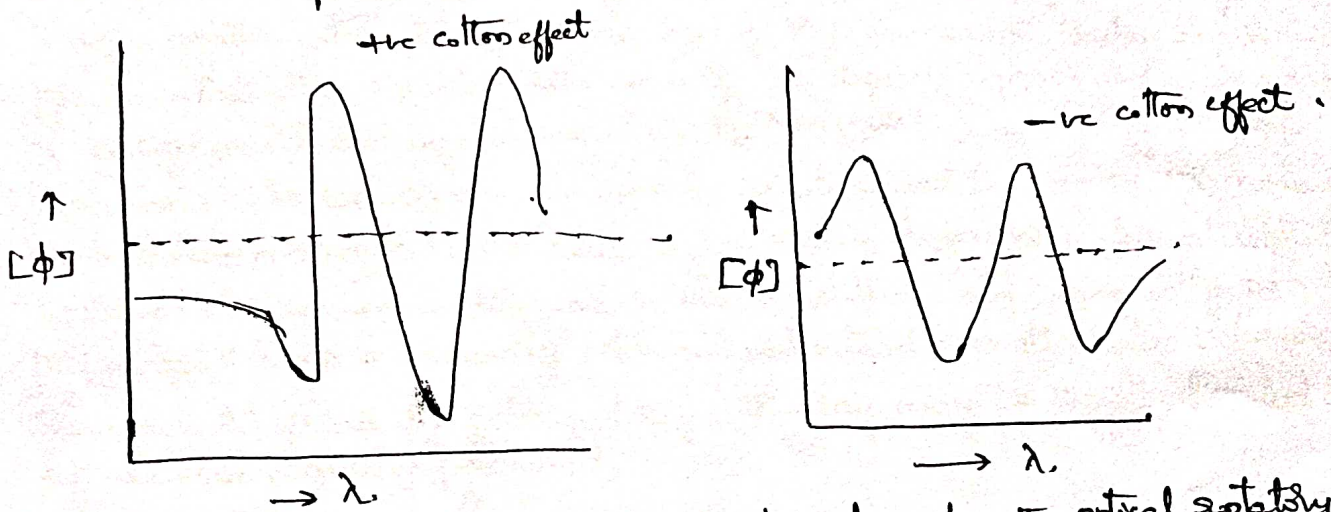 +ve cotton effect
-ve cotton effect.
↑
[ϕ]
↑
[ϕ]
→ λ.
→ λ.
optical rotatory